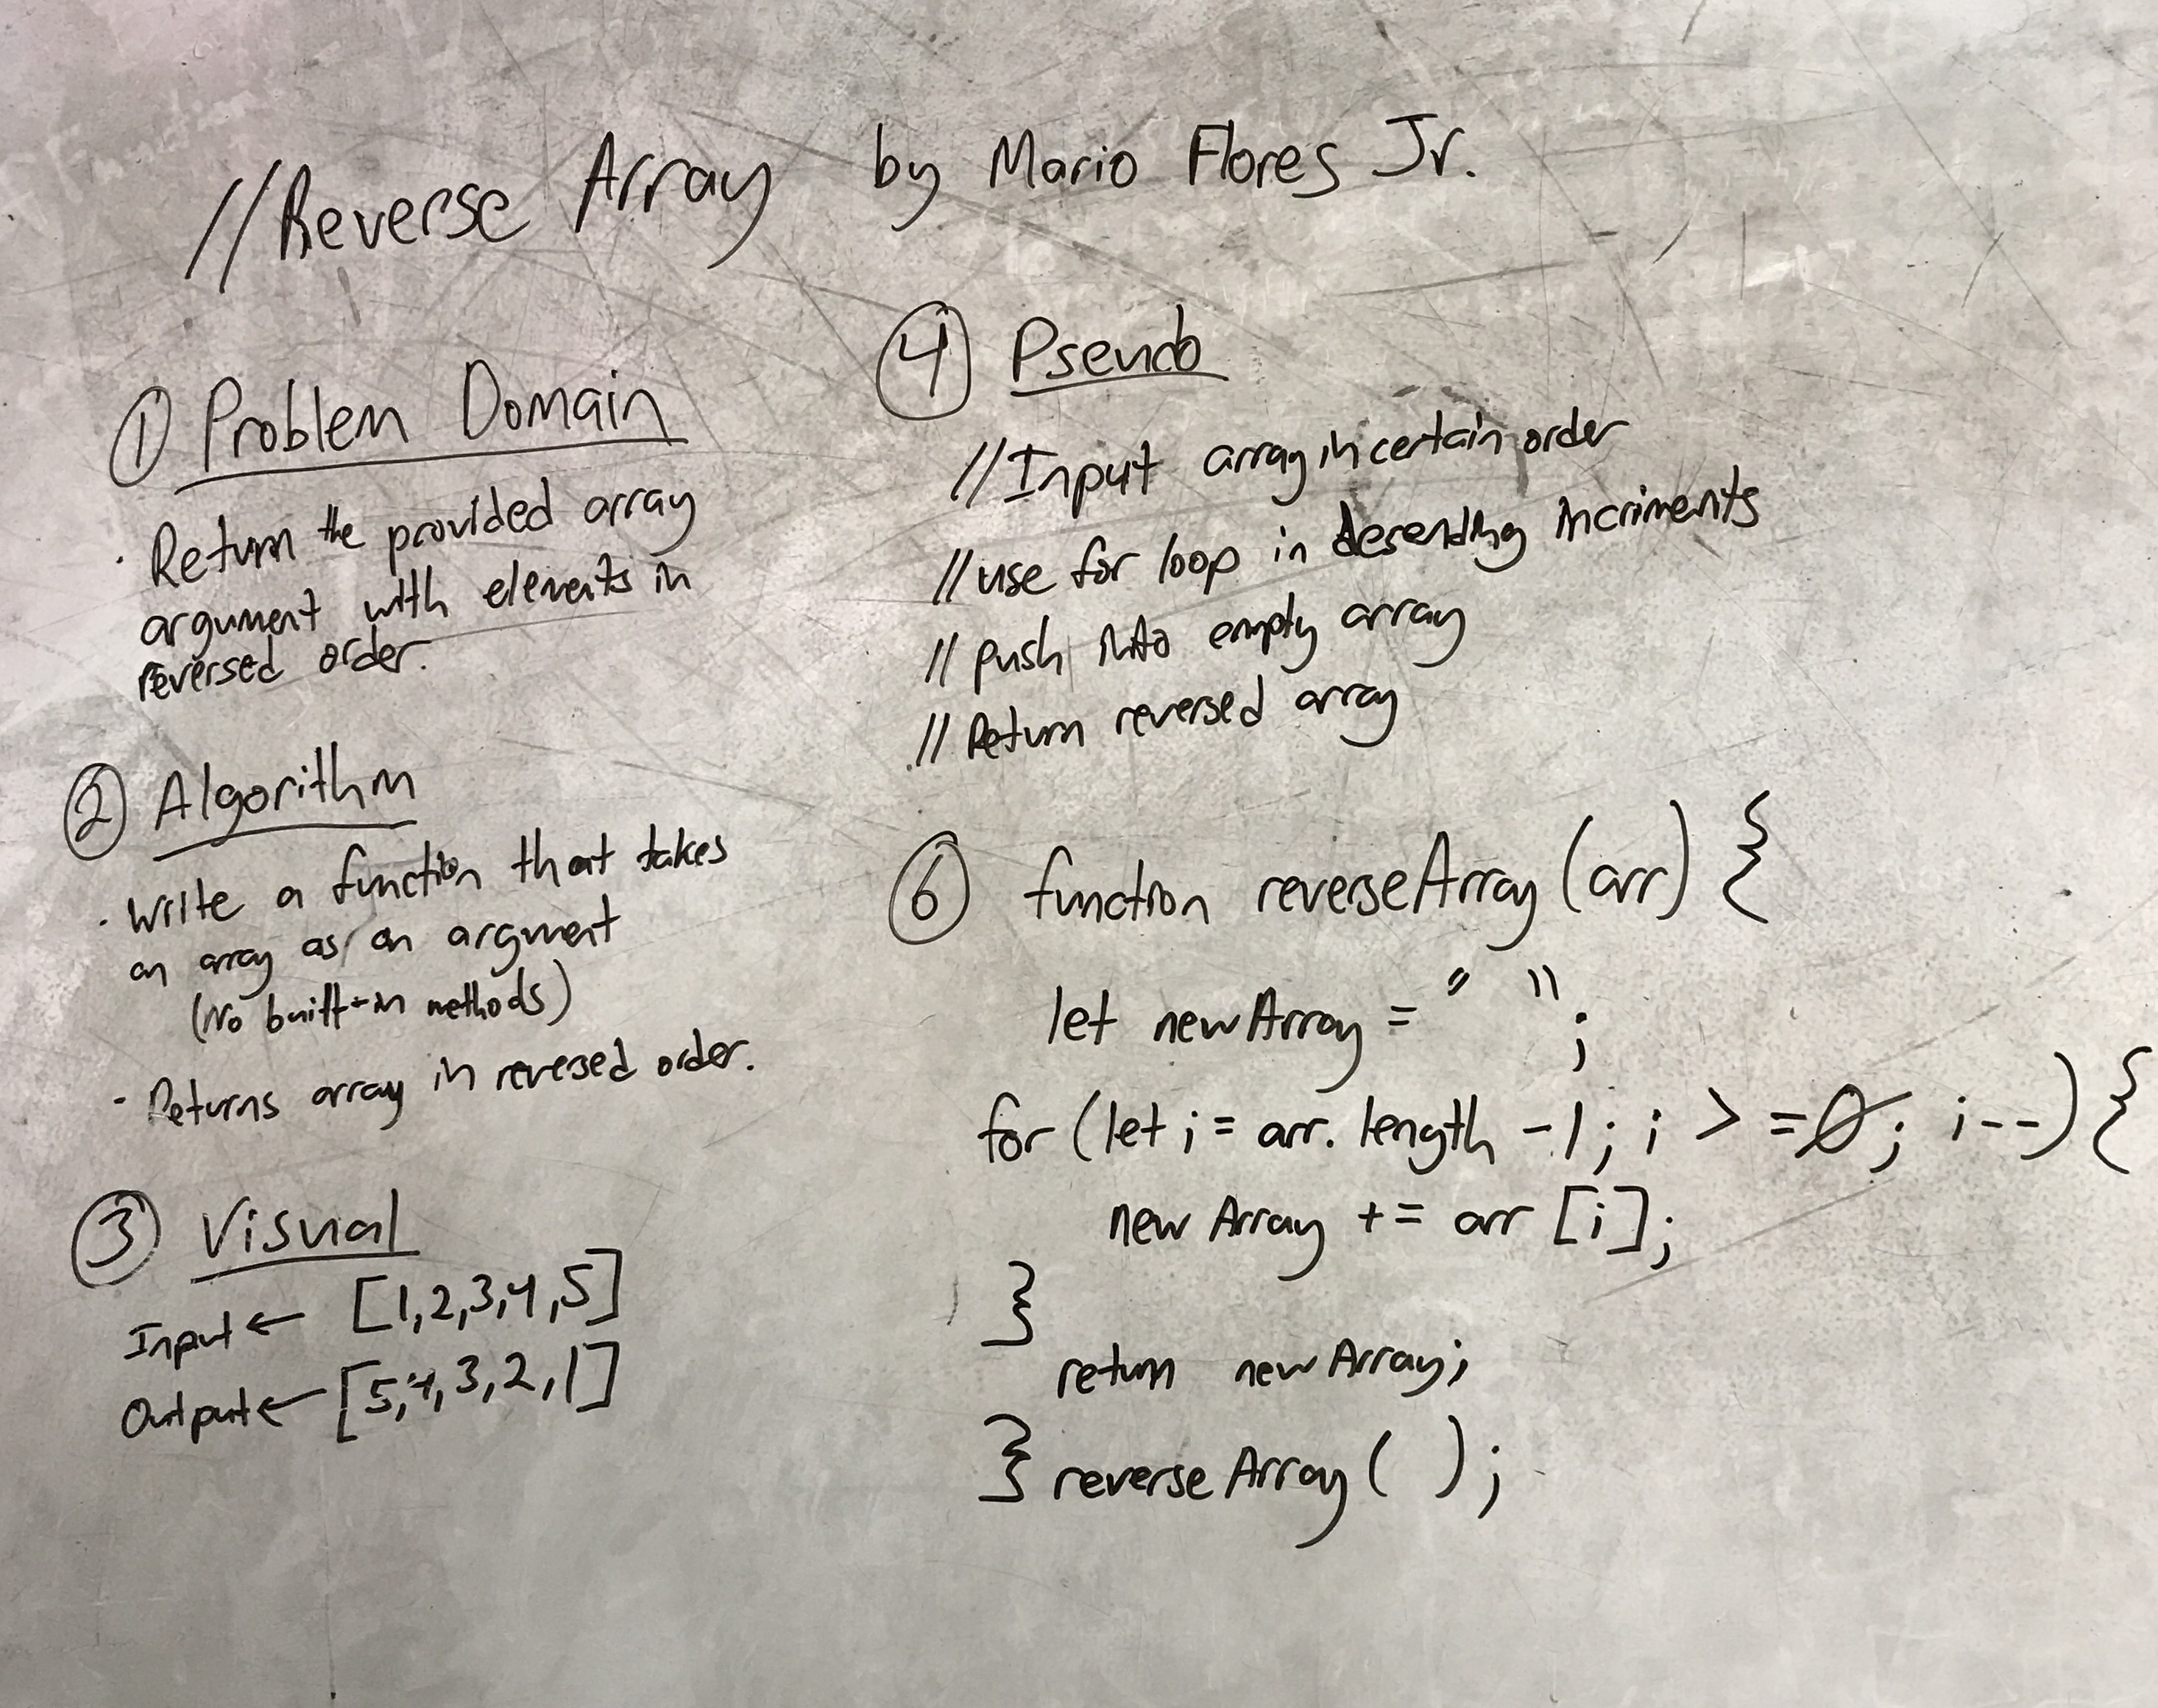 //Reverse Array by Mario Flores Jr.
① Problem Domain
· Return the provided array
argument with elements in
reversed order.
② Algorithm
· Write a function that takes
an array as an argument
(No built-in methods)
- Returns array in reversed order.
③ Visual
Input ← [1,2,3,4,5]
Output ← [5,4,3,2,1]
④ Pseudo
//Input array in certain order
//use for loop in desending incriments
// push into empty array
// Return reversed array
⑥ function reverseArray (arr) {
let newArray = " ";
for (let i = arr. length -1; i > =0; i--) {
newArray += arr [i];
}
return newArray;
} reverseArray ( );